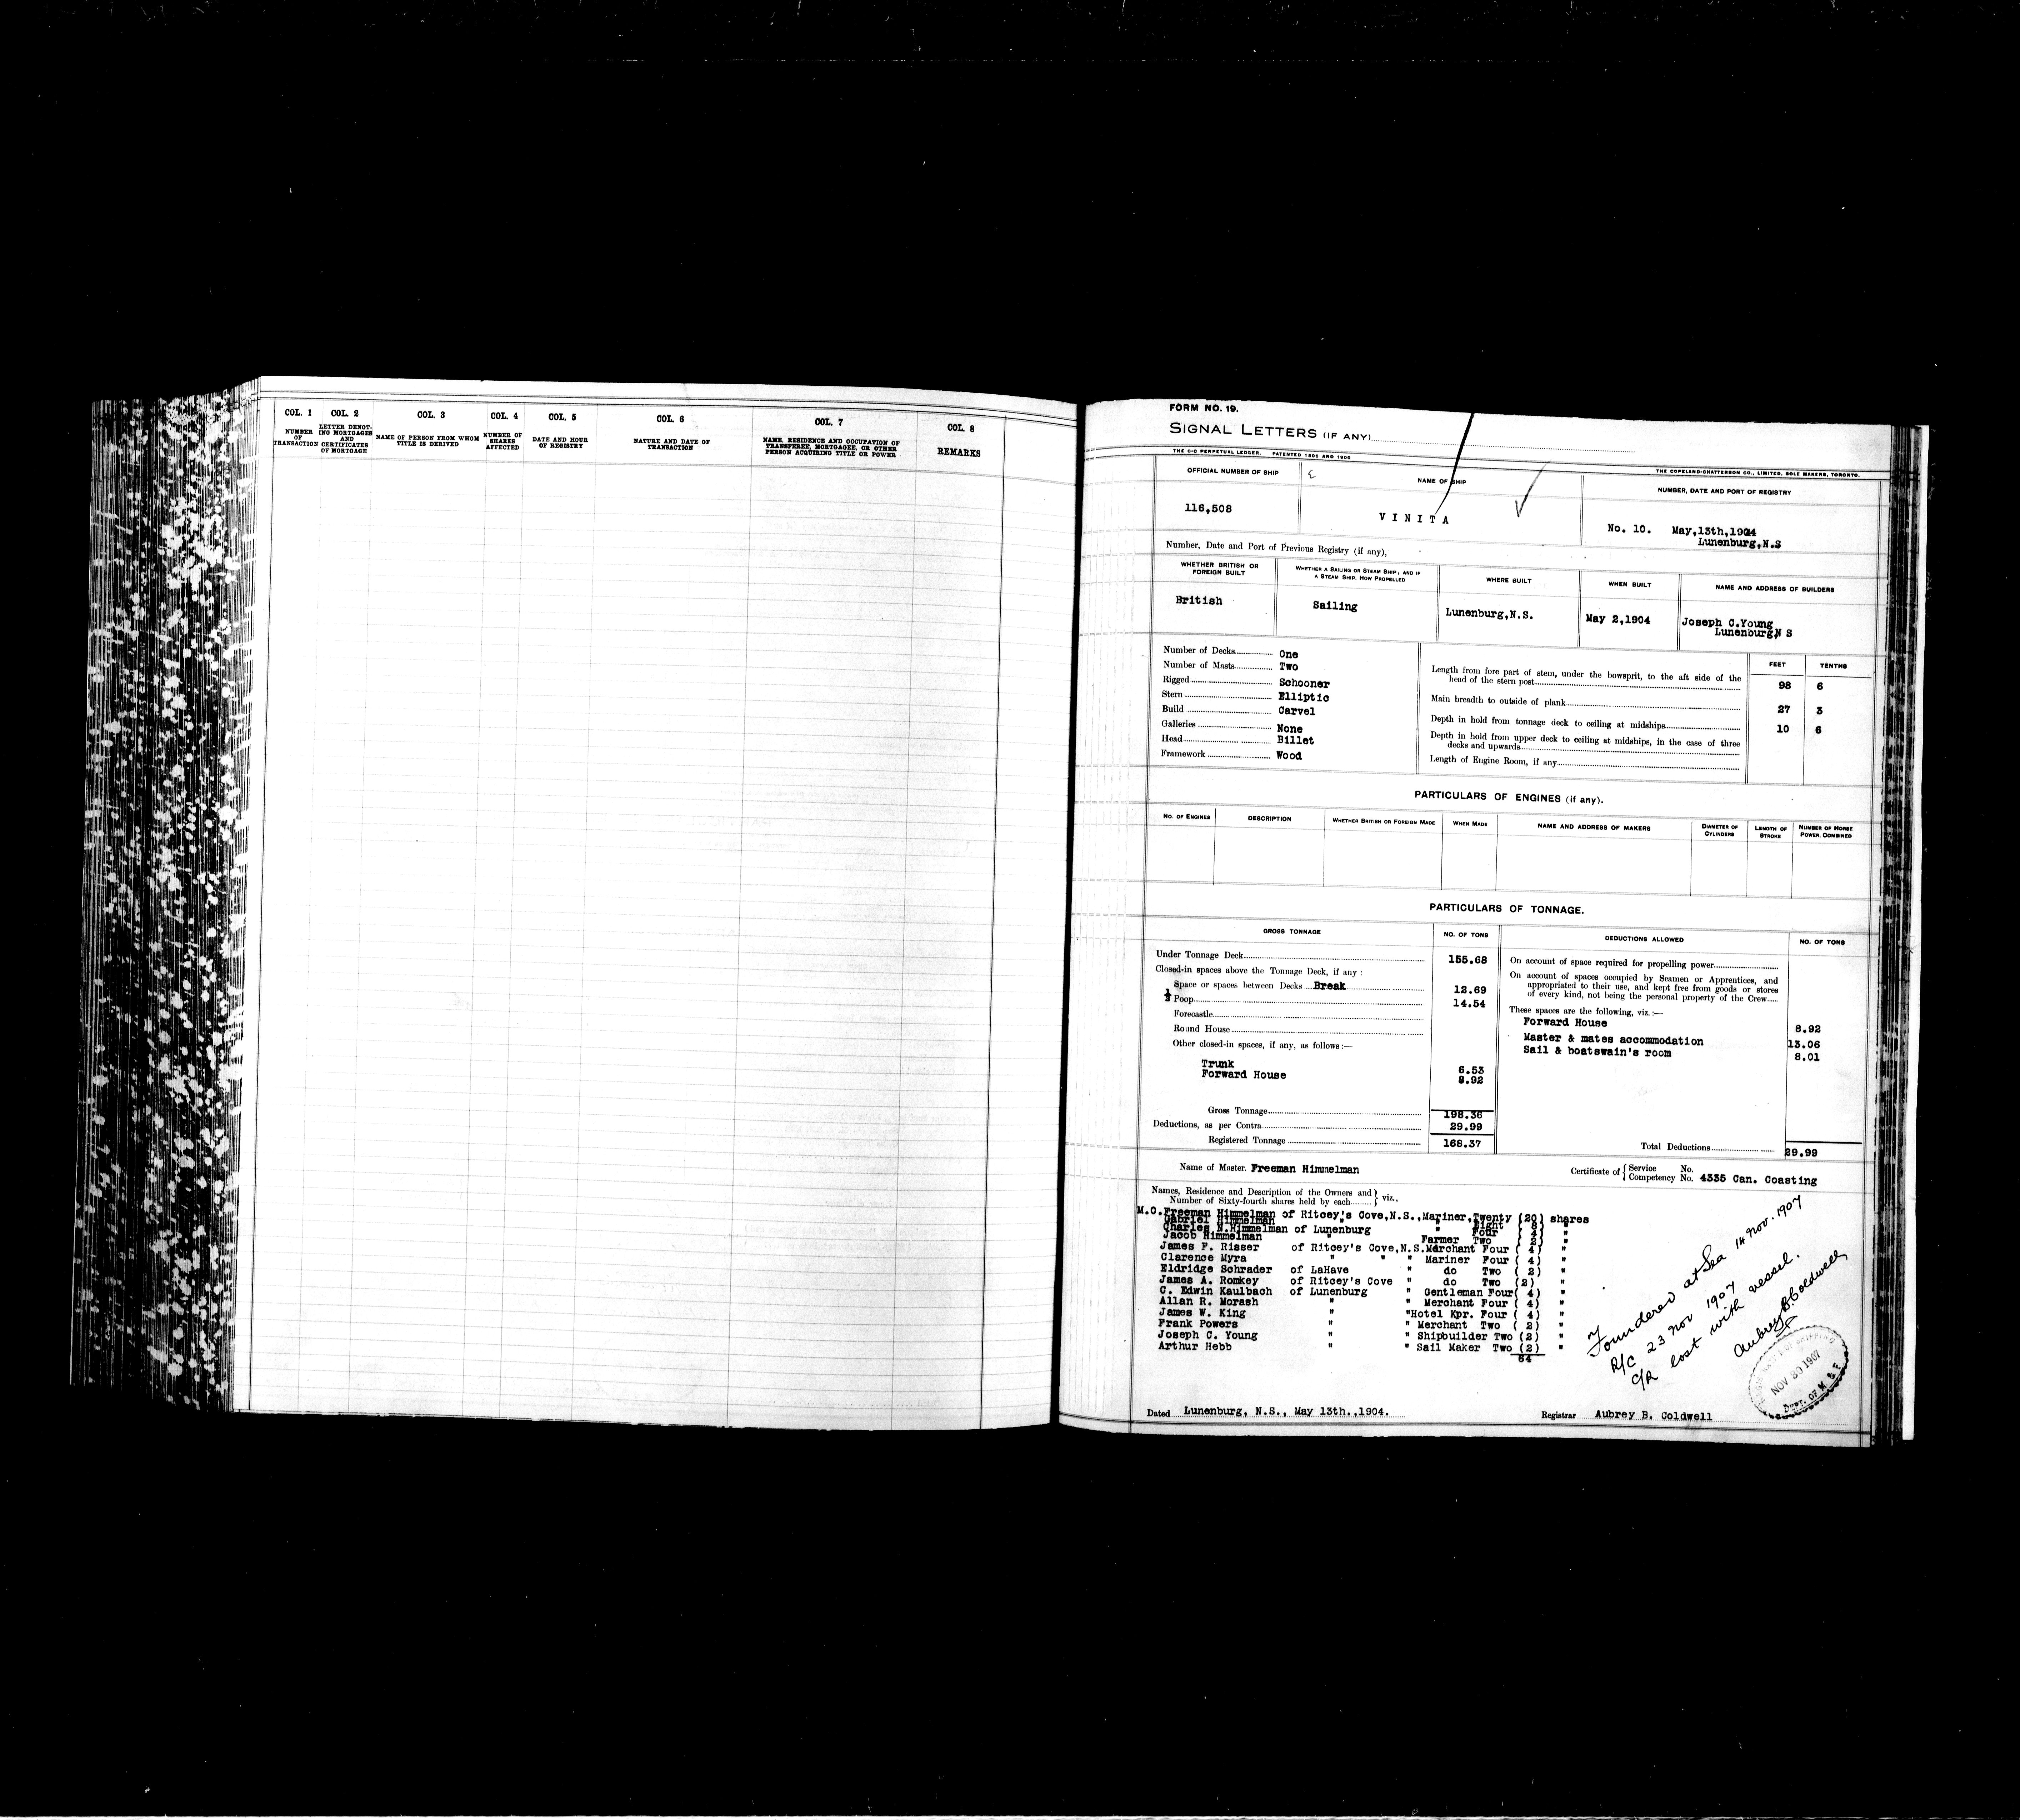 COL. 1
NUMBER
OF
TRANSACTION
COL. 2
LETTER DENOT-
ING MORTGAGES
AND
CERTIFICATES
OF MORTGAGE
COL. 3
NAME OF PERSON FROM WHOM
TITLE IS DERIVED
COL. 4
NUMBER OF
SHARES
AFFECTED
COL. 5
DATE AND HOUR
OF REGISTRY
COL. 6
NATURE AND DATE OF
TRANSACTION
COL. 7
NAME, RESIDENCE AND OCCUPATION OF
TRANSFEREE, MORTGAGEE, OR OTHER
PERSON ACQUIRING TITLE OR POWER
COL. 8
REMARKS
FORM NO. 19.
SIGNAL LETTERS (IF ANY)
THE C-C PERPETUAL LEDGER. PATENTED 1896 AND 1900
THE COPELAND-CHATTERSON CO., LIMITED, SOLE MAKERS, TORONTO.
OFFICIAL NUMBER OF SHIP
NAME OF SHIP
NUMBER, DATE AND PORT OF REGISTRY
116,508
VINITA
No. 10. May,13th,1904
Lunenburg,N.S
Number, Date and Port of Previous Registry (if any),
WHETHER BRITISH OR
FOREIGN BUILT
WHETHER A SAILING OR STEAM SHIP; AND IF
A STEAM SHIP, HOW PROPELLED
WHERE BUILT
WHEN BUILT
NAME AND ADDRESS OF BUILDERS
British
Sailing
Lunenburg,N.S.
May 2,1904
Joseph C.Young
Lunenburg,N S
Number of Decks One
Number of Masts Two
Rigged Schooner
Stern Elliptic
Build Carvel
Galleries None
Head Billet
Framework Wood
FEET TENTHS
Length from fore part of stem, under the bowsprit, to the aft side of the
head of the stern post 98 6
Main breadth to outside of plank 27 3
Depth in hold from tonnage deck to ceiling at midships 10 6
Depth in hold from upper deck to ceiling at midships, in the case of three
decks and upwards
Length of Engine Room, if any
PARTICULARS OF ENGINES (if any).
NO. OF ENGINES
DESCRIPTION
WHETHER BRITISH OR FOREIGN MADE
WHEN MADE
NAME AND ADDRESS OF MAKERS
DIAMETER OF
CYLINDERS
LENGTH OF
STROKE
NUMBER OF HORSE
POWER, COMBINED
PARTICULARS OF TONNAGE.
GROSS TONNAGE
NO. OF TONS
Under Tonnage Deck 155.68
Closed-in spaces above the Tonnage Deck, if any :
Space or spaces between Decks Break 12.69
½ Poop 14.54
Forecastle
Round House
Other closed-in spaces, if any, as follows :—
Trunk 6.53
Forward House 8.92
Gross Tonnage 198.36
Deductions, as per Contra 29.99
Registered Tonnage 168.37
DEDUCTIONS ALLOWED
NO. OF TONS
On account of space required for propelling power
On account of spaces occupied by Seamen or Apprentices, and
appropriated to their use, and kept free from goods or stores
of every kind, not being the personal property of the Crew
These spaces are the following, viz.:—
Forward House 8.92
Master & mates accommodation 13.06
Sail & boatswain's room 8.01
Total Deductions 29.99
Name of Master. Freeman Himmelman
Certificate of { Service No.
Competency No. 4335 Can. Coasting
Names, Residence and Description of the Owners and
Number of Sixty-fourth shares held by each } viz.,
M.O.Freeman Himmelman of Ritcey's Cove,N.S.,Mariner,Twenty (20) shares
Gabriel Himmelman " " Eight ( 8) "
Charles N.Himmelman of Lunenburg " Four ( 4) "
Jacob Himmelman " Farmer Two ( 2) "
James F. Risser of Ritcey's Cove,N.S.Merchant Four ( 4) "
Clarence Myra " " " Mariner Four ( 4) "
Eldridge Schrader of LaHave " do Two ( 2) "
James A. Romkey of Ritcey's Cove " do Two (2) "
C. Edwin Kaulbach of Lunenburg " Gentleman Four( 4) "
Allan R. Morash " " Merchant Four ( 4) "
James W. King " "Hotel Kpr. Four ( 4) "
Frank Powers " " Merchant Two ( 2) "
Joseph C. Young " " Shipbuilder Two (2) "
Arthur Hebb " " Sail Maker Two (2) "
64
Foundered at Sea 14 Nov. 1907
R/C 23 Nov 1907
C/R lost with vessel.
Aubrey B. Coldwell
NOV 30 1907
DEPT. OF M. & F.
Dated Lunenburg, N.S., May 13th.,1904.
Registrar Aubrey B. Coldwell